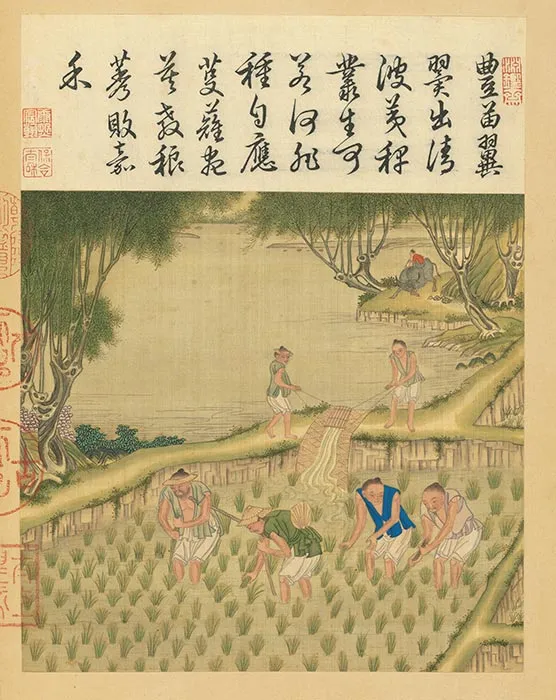 豐苗翼
翼出清
波荑稗
叢生可
若何非
種自應
芟薙盡
莫教稂
莠敗嘉
禾